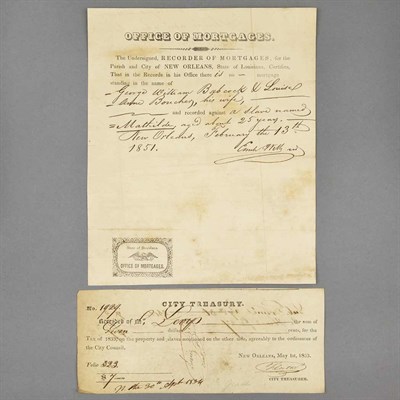 OFFICE OF MORTGAGES.
The Undersigned, RECORDER OF MORTGAGES, for the
Parish and City of NEW ORLEANS, State of Louisiana, Certifies,
That in the Records in his Office there is no mortgage
standing in the name of
George William Babcock & Louisa
Anne Bouchey, his wife,
and recorded against a slave named
Mathilda, aged about 25 years.
New Orleans, February the 13th
1851.
State of Louisiana
OFFICE OF MORTGAGES.
CITY TREASURY.
No. 1927.
Received of Mr. Levys the sum of
Seven
Tax of on the property and slaves mentioned on the other side, agreeably to the ordinance of
the City Council.
Folio 223
NEW ORLEANS, May 1st, 1852.
$7
CITY TREASURER.